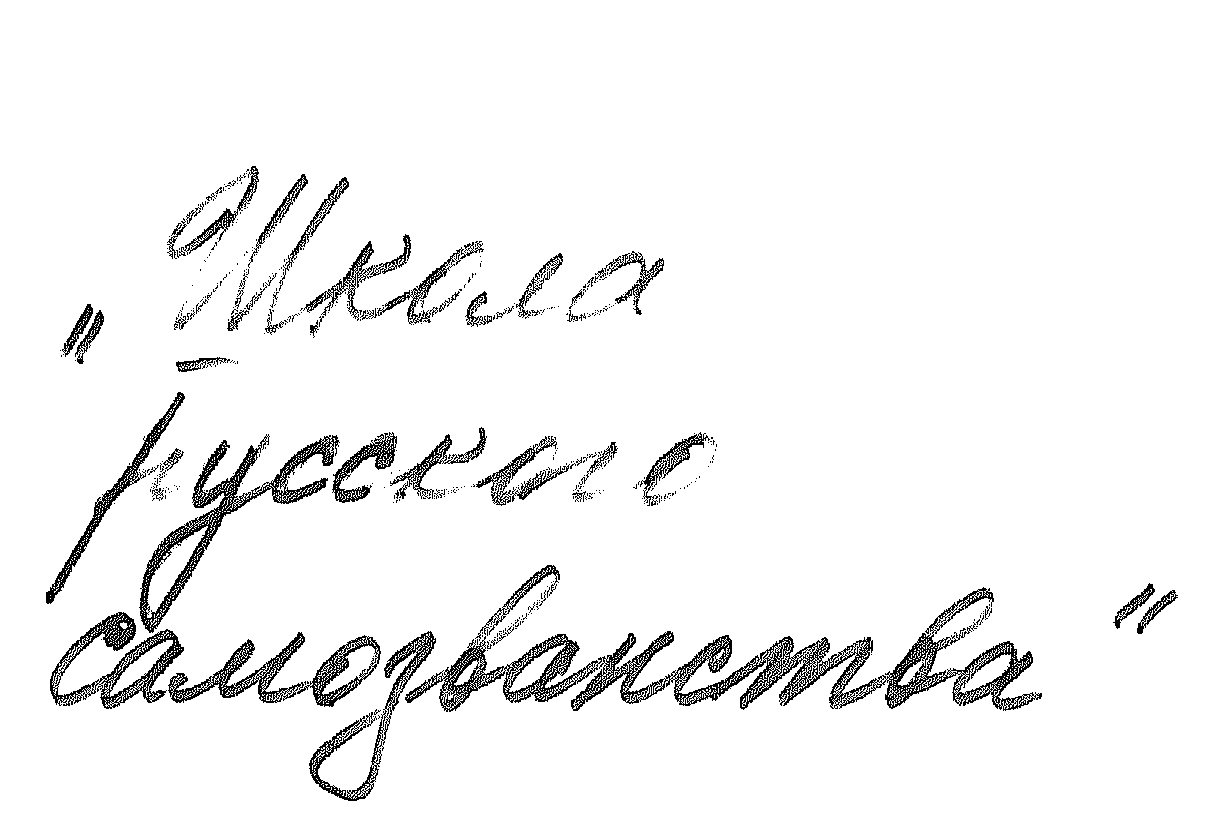 „Школа
русского
самозванства"